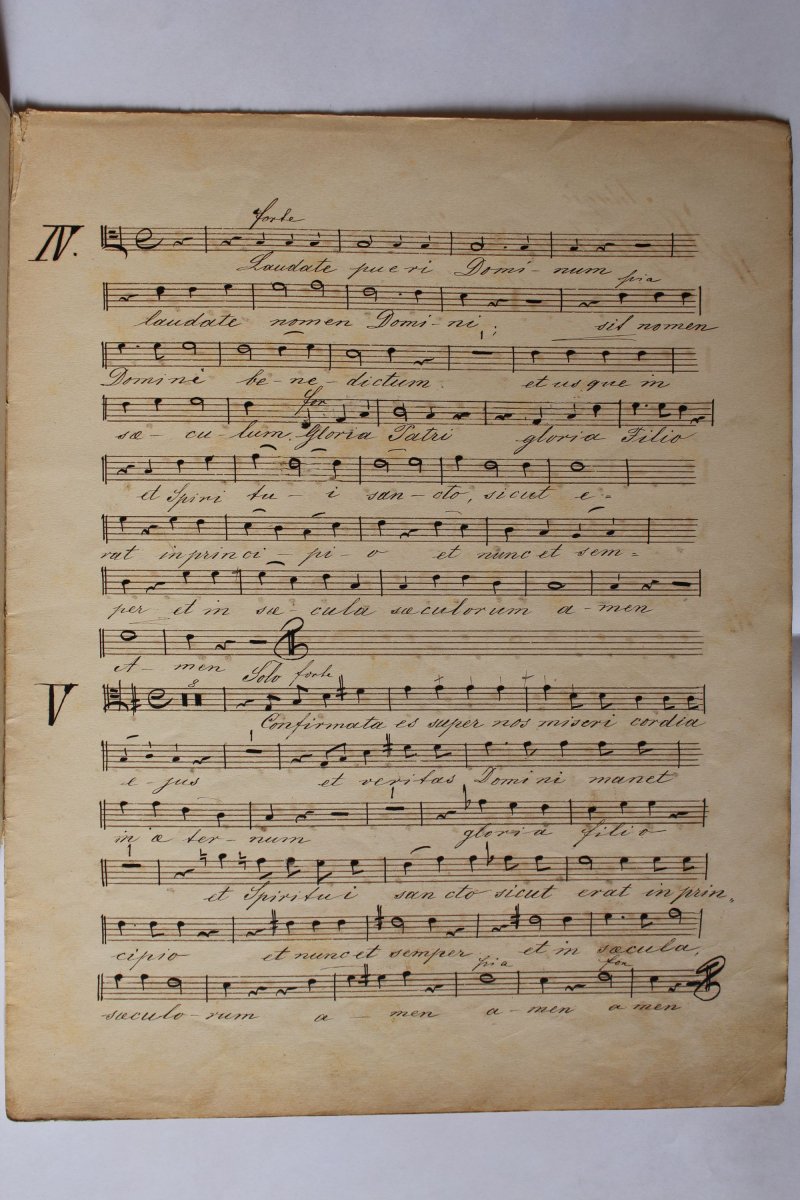 forte
IV.
Laudate pueri Domi - num
pia
laudate nomen Domi - ni ; sit nomen
Domini be - ne - dictum. et usque in
for
sæ - cu - lum. Gloria Patri gloria Filio
et Spiri tu - i san - cto, sicut e =
rat in princi - pi - o et nunc et sem =
per et in sæ - cula sæculorum a - men
A - men
Solo forte
V
8
Confirmata es super nos miseri cordia
1
e - jus et veritas Domini manet
1
in æ ter - num gloria filio
1
et Spiritu i san cto sicut erat in prin „
cipio et nunc et semper et in sæcula,
pia for
sæculo - rum a - men a - men a men